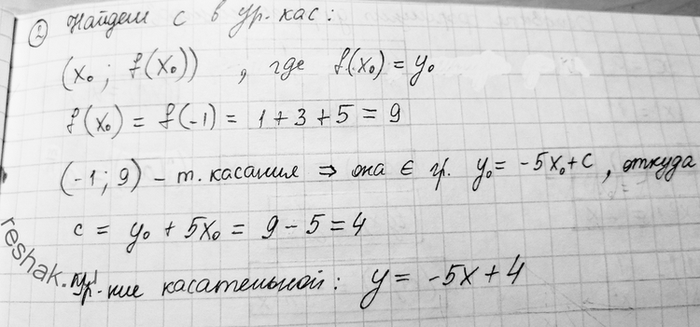 ② Найдем c в ур. кас:
(x₀; f(x₀)), где f(x₀) = y₀
f(x₀) = f(-1) = 1 + 3 + 5 = 9
(-1; 9) – т. касания ⇒ она ∈ гр. y₀ = -5x₀ + c, откуда
c = y₀ + 5x₀ = 9 – 5 = 4
Ур-ние касательной: y = -5x + 4
reshak.